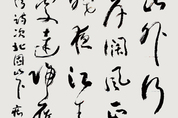 山外行
岸阔风正
残夜江春
处达归雁
诗次北固山下